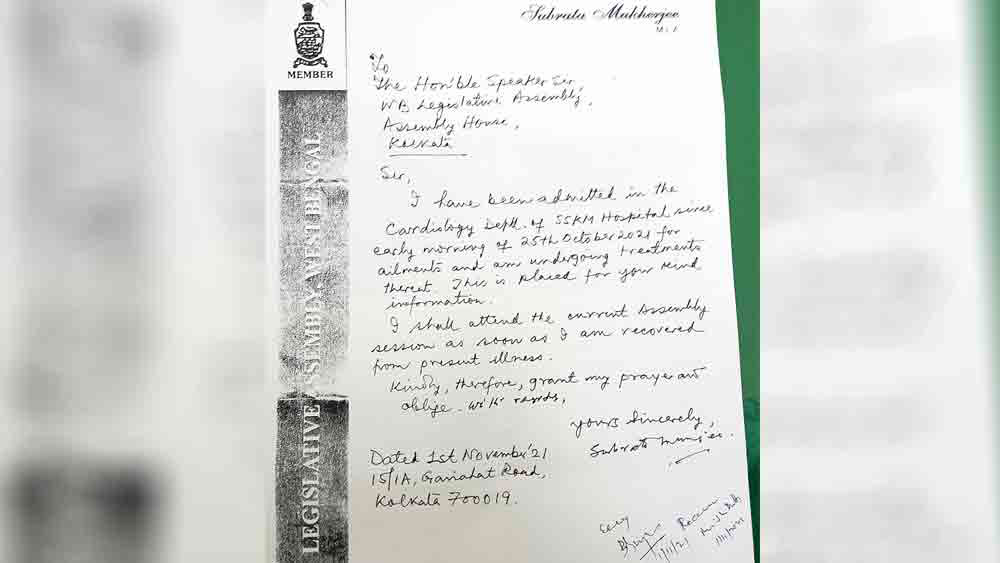 MEMBER
LEGISLATIVE ASSEMBLY, WEST BENGAL
Subrata Mukherjee
M L A
To
The Hon'ble Speaker Sir,
WB Legislative Assembly,
Assembly House,
Kolkata
Sir,
I have been admitted in the
Cardiology Deptt. of SSKM Hospital since
early morning of 25th October 2021 for
ailments and am undergoing treatments
thereat. This is placed for your kind
information.
I shall attend the current Assembly
session as soon as I am recovered
from present illness.
Kindly, therefore, grant my prayer and
oblige. With
yours sincerely,
Subrata
Dated 1st November'21
15/1A, Gariahat Road,
Kolkata 700019.
1/11/21